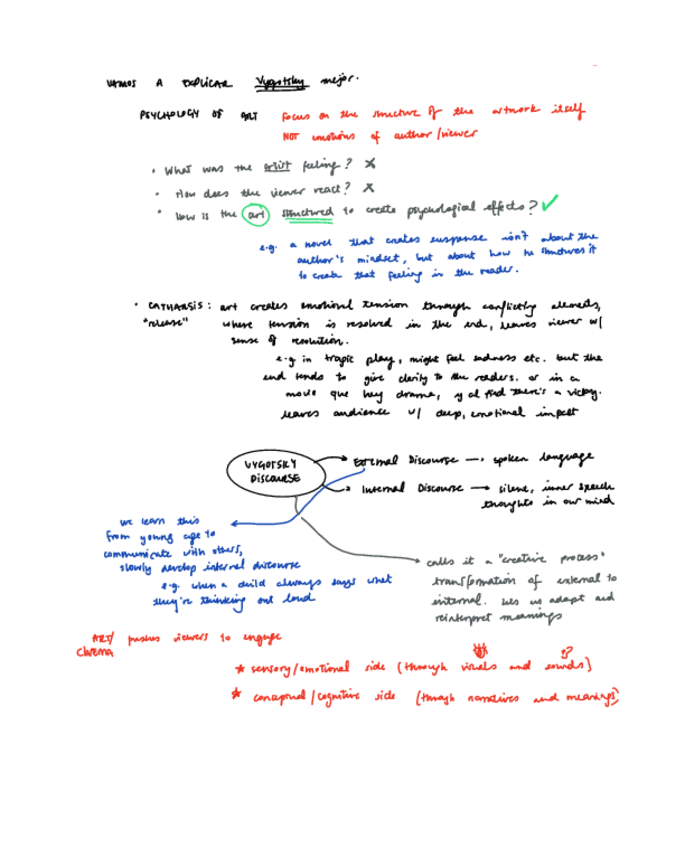 VAMOS A EXPLICAR Vygotsky mejor.
PSYCHOLOGY OF ART focus on the structure of the artwork itself
NOT emotions of author/viewer
• What was the artist feeling? X
• How does the viewer react? X
• How is the art structured to create psychological effects? ✓
e.g. a novel that creates suspense isn't about the
author's mindset, but about how he structures it
to create that feeling in the reader.
• CATHARSIS: art creates emotional tension through conflicting elements,
"release" where tension is resolved in the end, leaves viewer w/
sense of resolution.
e.g in tragic play, might feel sadness etc. but the
end tends to give clarity to the readers. or in a
movie que hay drama, y al final there's a victory.
leaves audience w/ deep, emotional impact
VYGOTSKY
DISCOURSE
External Discourse → spoken language
Internal Discourse → silent, inner speech
thoughts in our mind
we learn this
from young age to
communicate with others,
slowly develop internal discourse
e.g. when a child always says what
they're thinking out loud
calls it a "creative process"
transformation of external to
internal. lets us adapt and
reinterpret meanings
ART/ pushes viewers to engage
Cinema
★ sensory/emotional side (through visuals and sounds)
★ conceptual/cognitive side (through narratives and meanings)